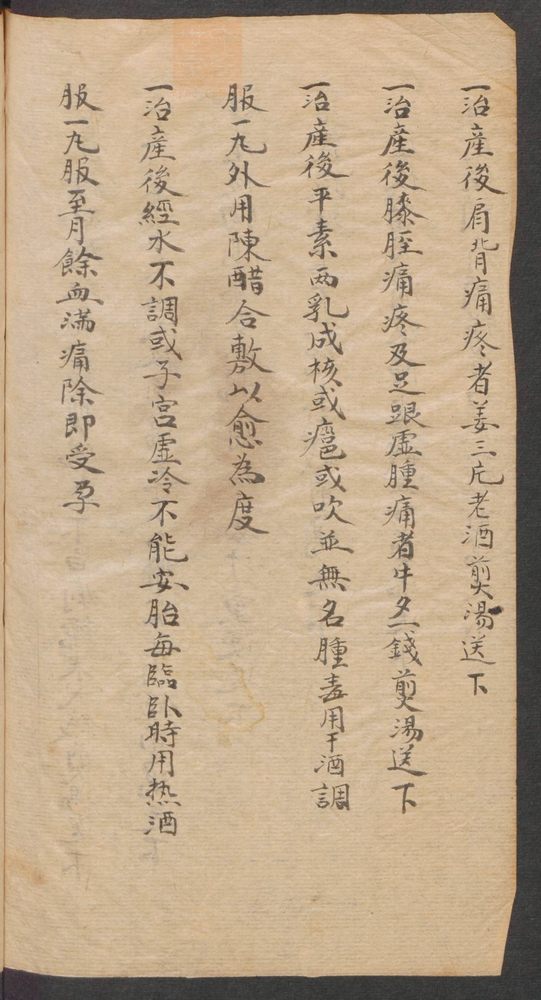 一治産後肩背痛疼者姜三片老酒煎湯送下
一治産後膝脛痛疼及足跟虛腫痛者牛夕一錢煎湯送下
一治産後平素両乳成核或癰或吹並無名腫毒用干酒調
服一丸外用陳醋合敷以愈為度
一治産後經水不調或子宮虛冷不能安胎每臨卧時用热酒
服一丸服至月餘血滿痛除即受孕